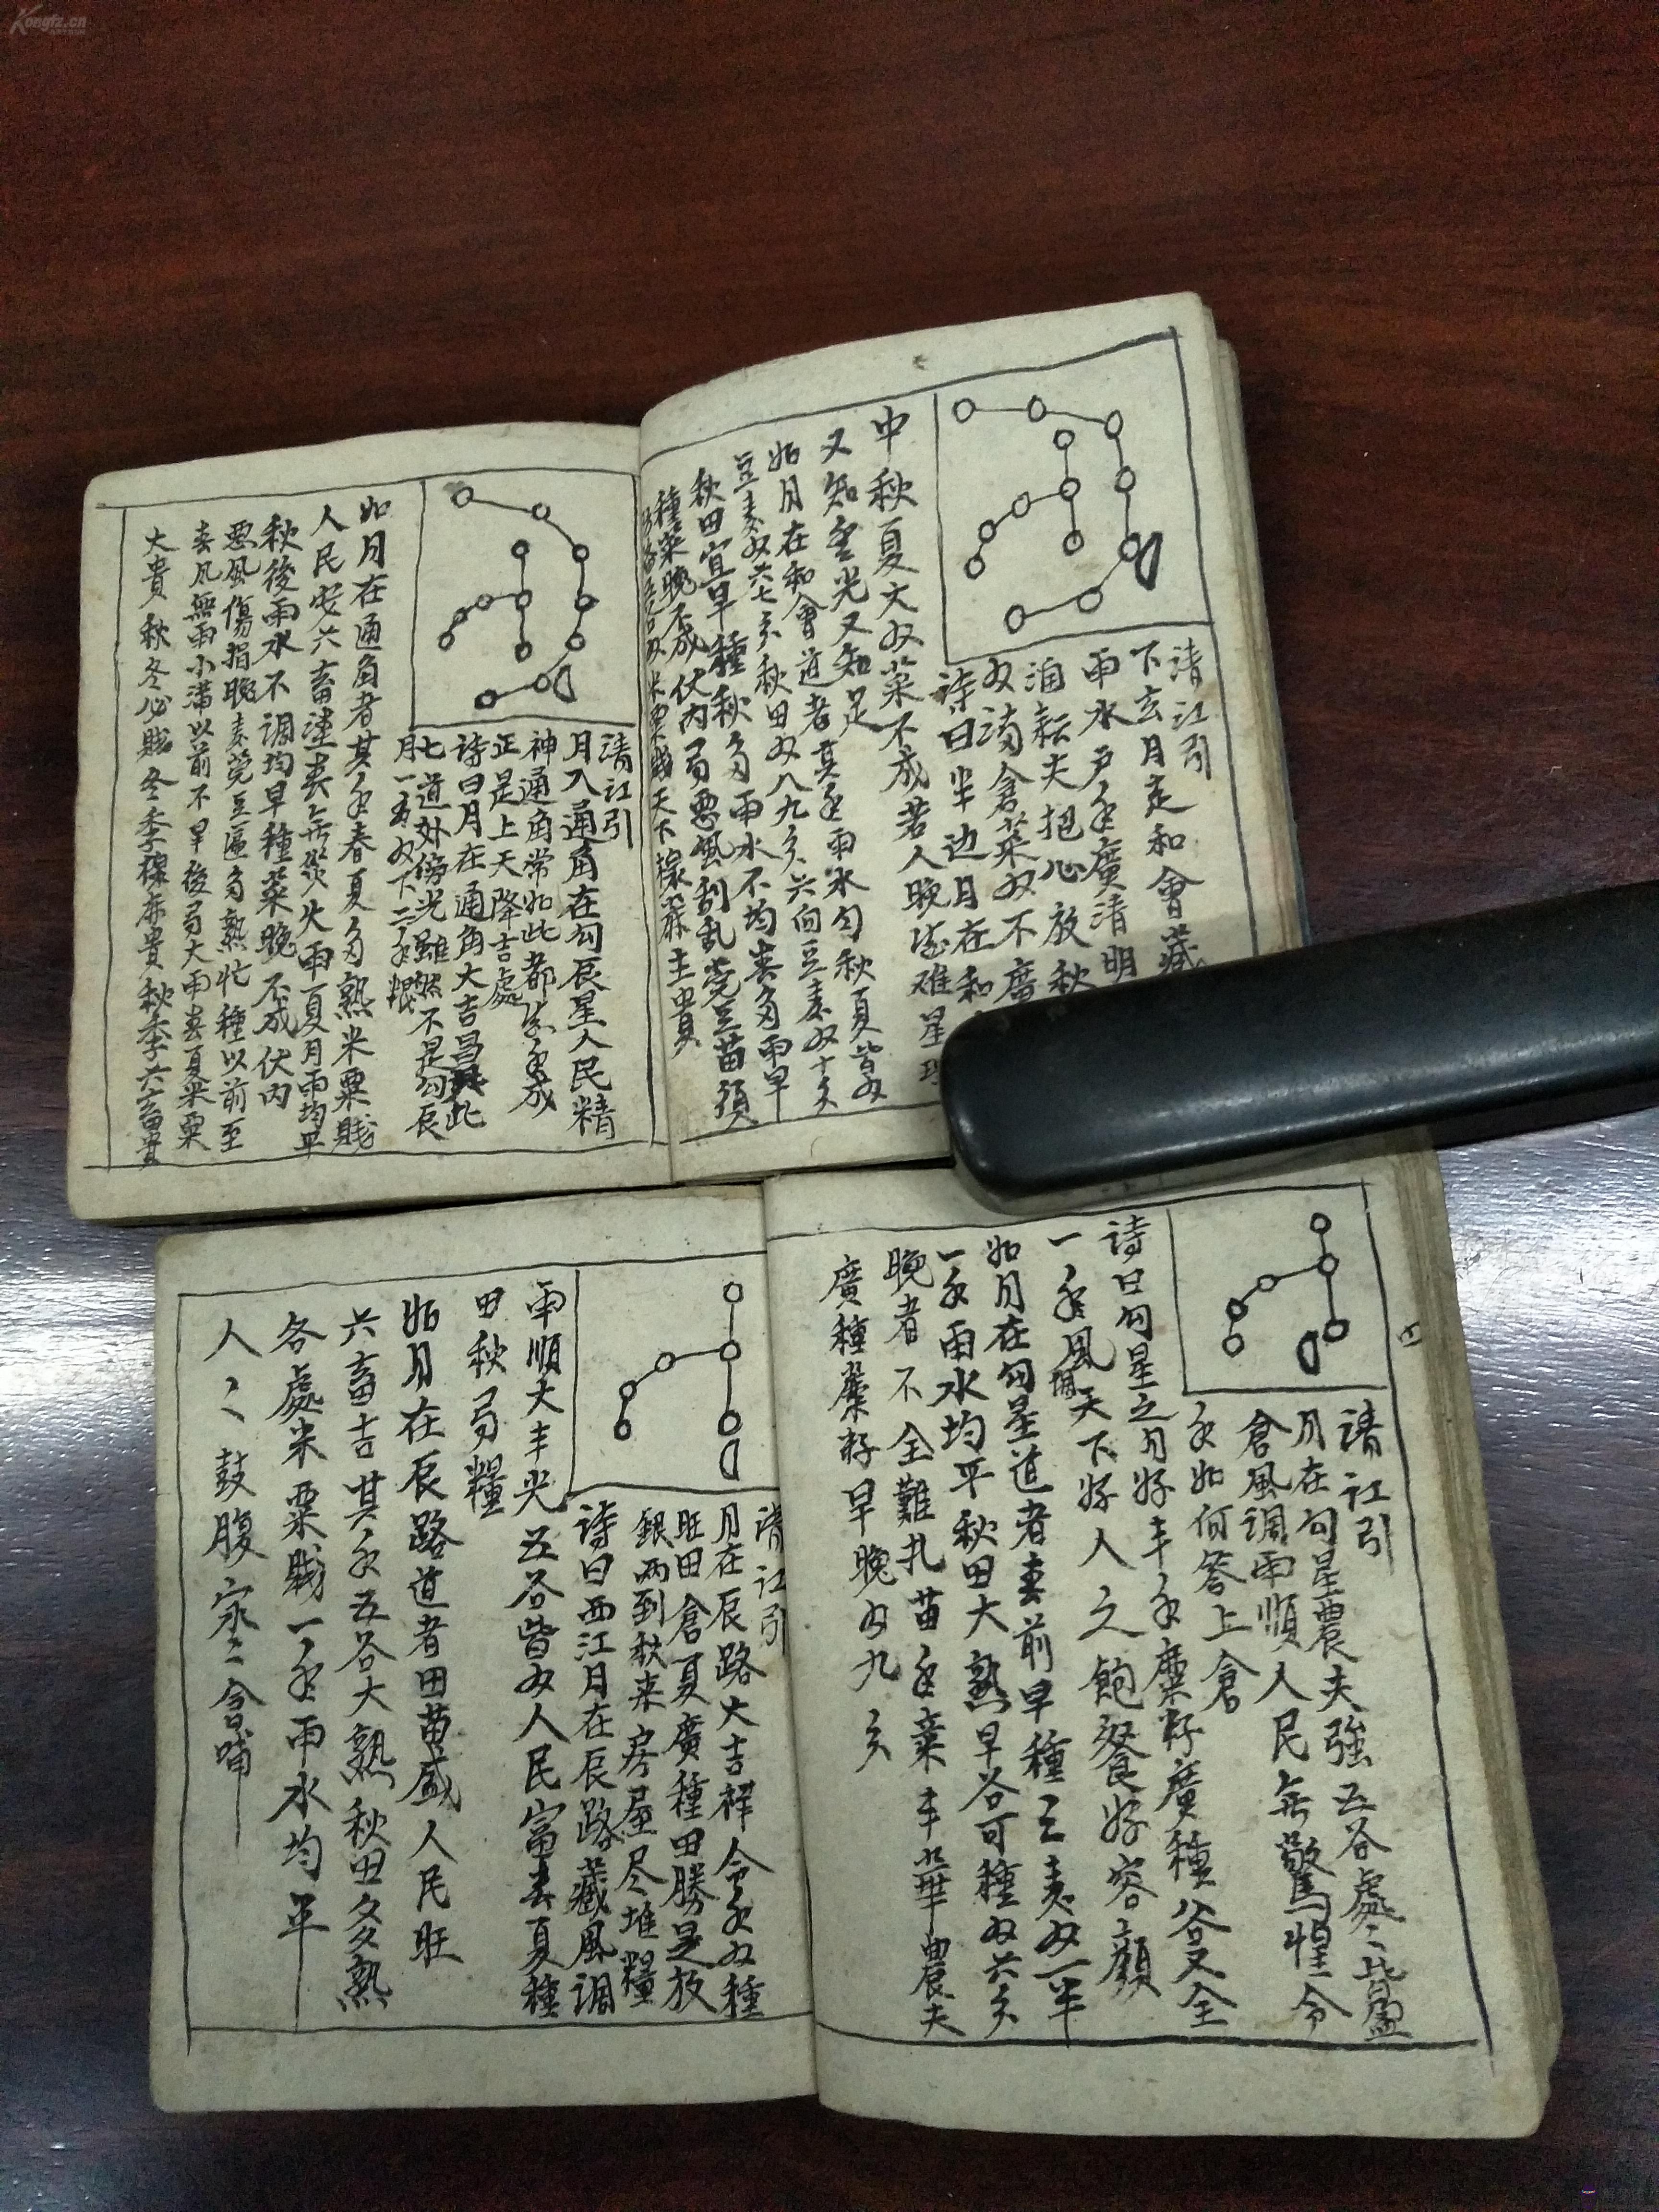 Kongfz.cn
清江引
下玄月走和會藏
雨水戸年廣清明
夫抱心放秋
収滿倉菜収不廣
詩曰半边月在和
中秋夏大収菜不成若人晚
难星
又知星光又知足
如月在和會道者其年雨水匀秋夏皆収
豆麦収六七分秋田収八九分六向豆麦収十分
秋田宜早種秋多雨水不均春多雨早
種菜晚不成伏内多悪風刮乱莞豆苗須
米粟賤天下
主貴
清江引
月入通角在勾辰星人民精
神通角常如此都
年成
正是上天降吉處
詩曰月在通角大吉昌
此
七道外傍光雖然不是勾辰
月一
収下二年粮
如月在通角者其年春夏多熟米粟賤
人民安六畜
春無災火雨夏月雨均平
秋後雨水不調均早種菜晚不成伏内
悪風傷損晚麦莞豆匾多熟忙種以前至
春凡無雨小满以前不旱後多大雨春夏米粟
大貴秋冬必賤冬季
麻貴秋季六畜貴
清江引
月在勾星農夫強五谷處二皆盈
倉風調雨順人民無驚惶今
年如何答上倉
詩曰勾星之月好丰年糜籽廣種谷又全
一年風調天下好人之飽餐好容顔
如月在勾星道者春前早種三麦収一半
一年雨水均平秋田大熟早谷可種収六分
晚者不全難扎苗年菜丰華農夫
廣種糜籽早晚収九分
清江引
月在辰路大吉祥今年収種
旺田倉夏廣種田勝是放
銀两到秋来房屋尽堆糧
詩曰西江月在辰路藏風調
雨順大丰光五谷皆収人民富春夏種
田秋多糧
如月在辰路道者田苗盛人民旺
六畜吉其年五谷大熟秋田多熟
各處米粟賤一年雨水均平
人之鼓腹家二含哺